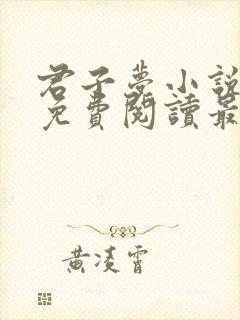 君子夢小說
免費閱讀最
黃凌霄